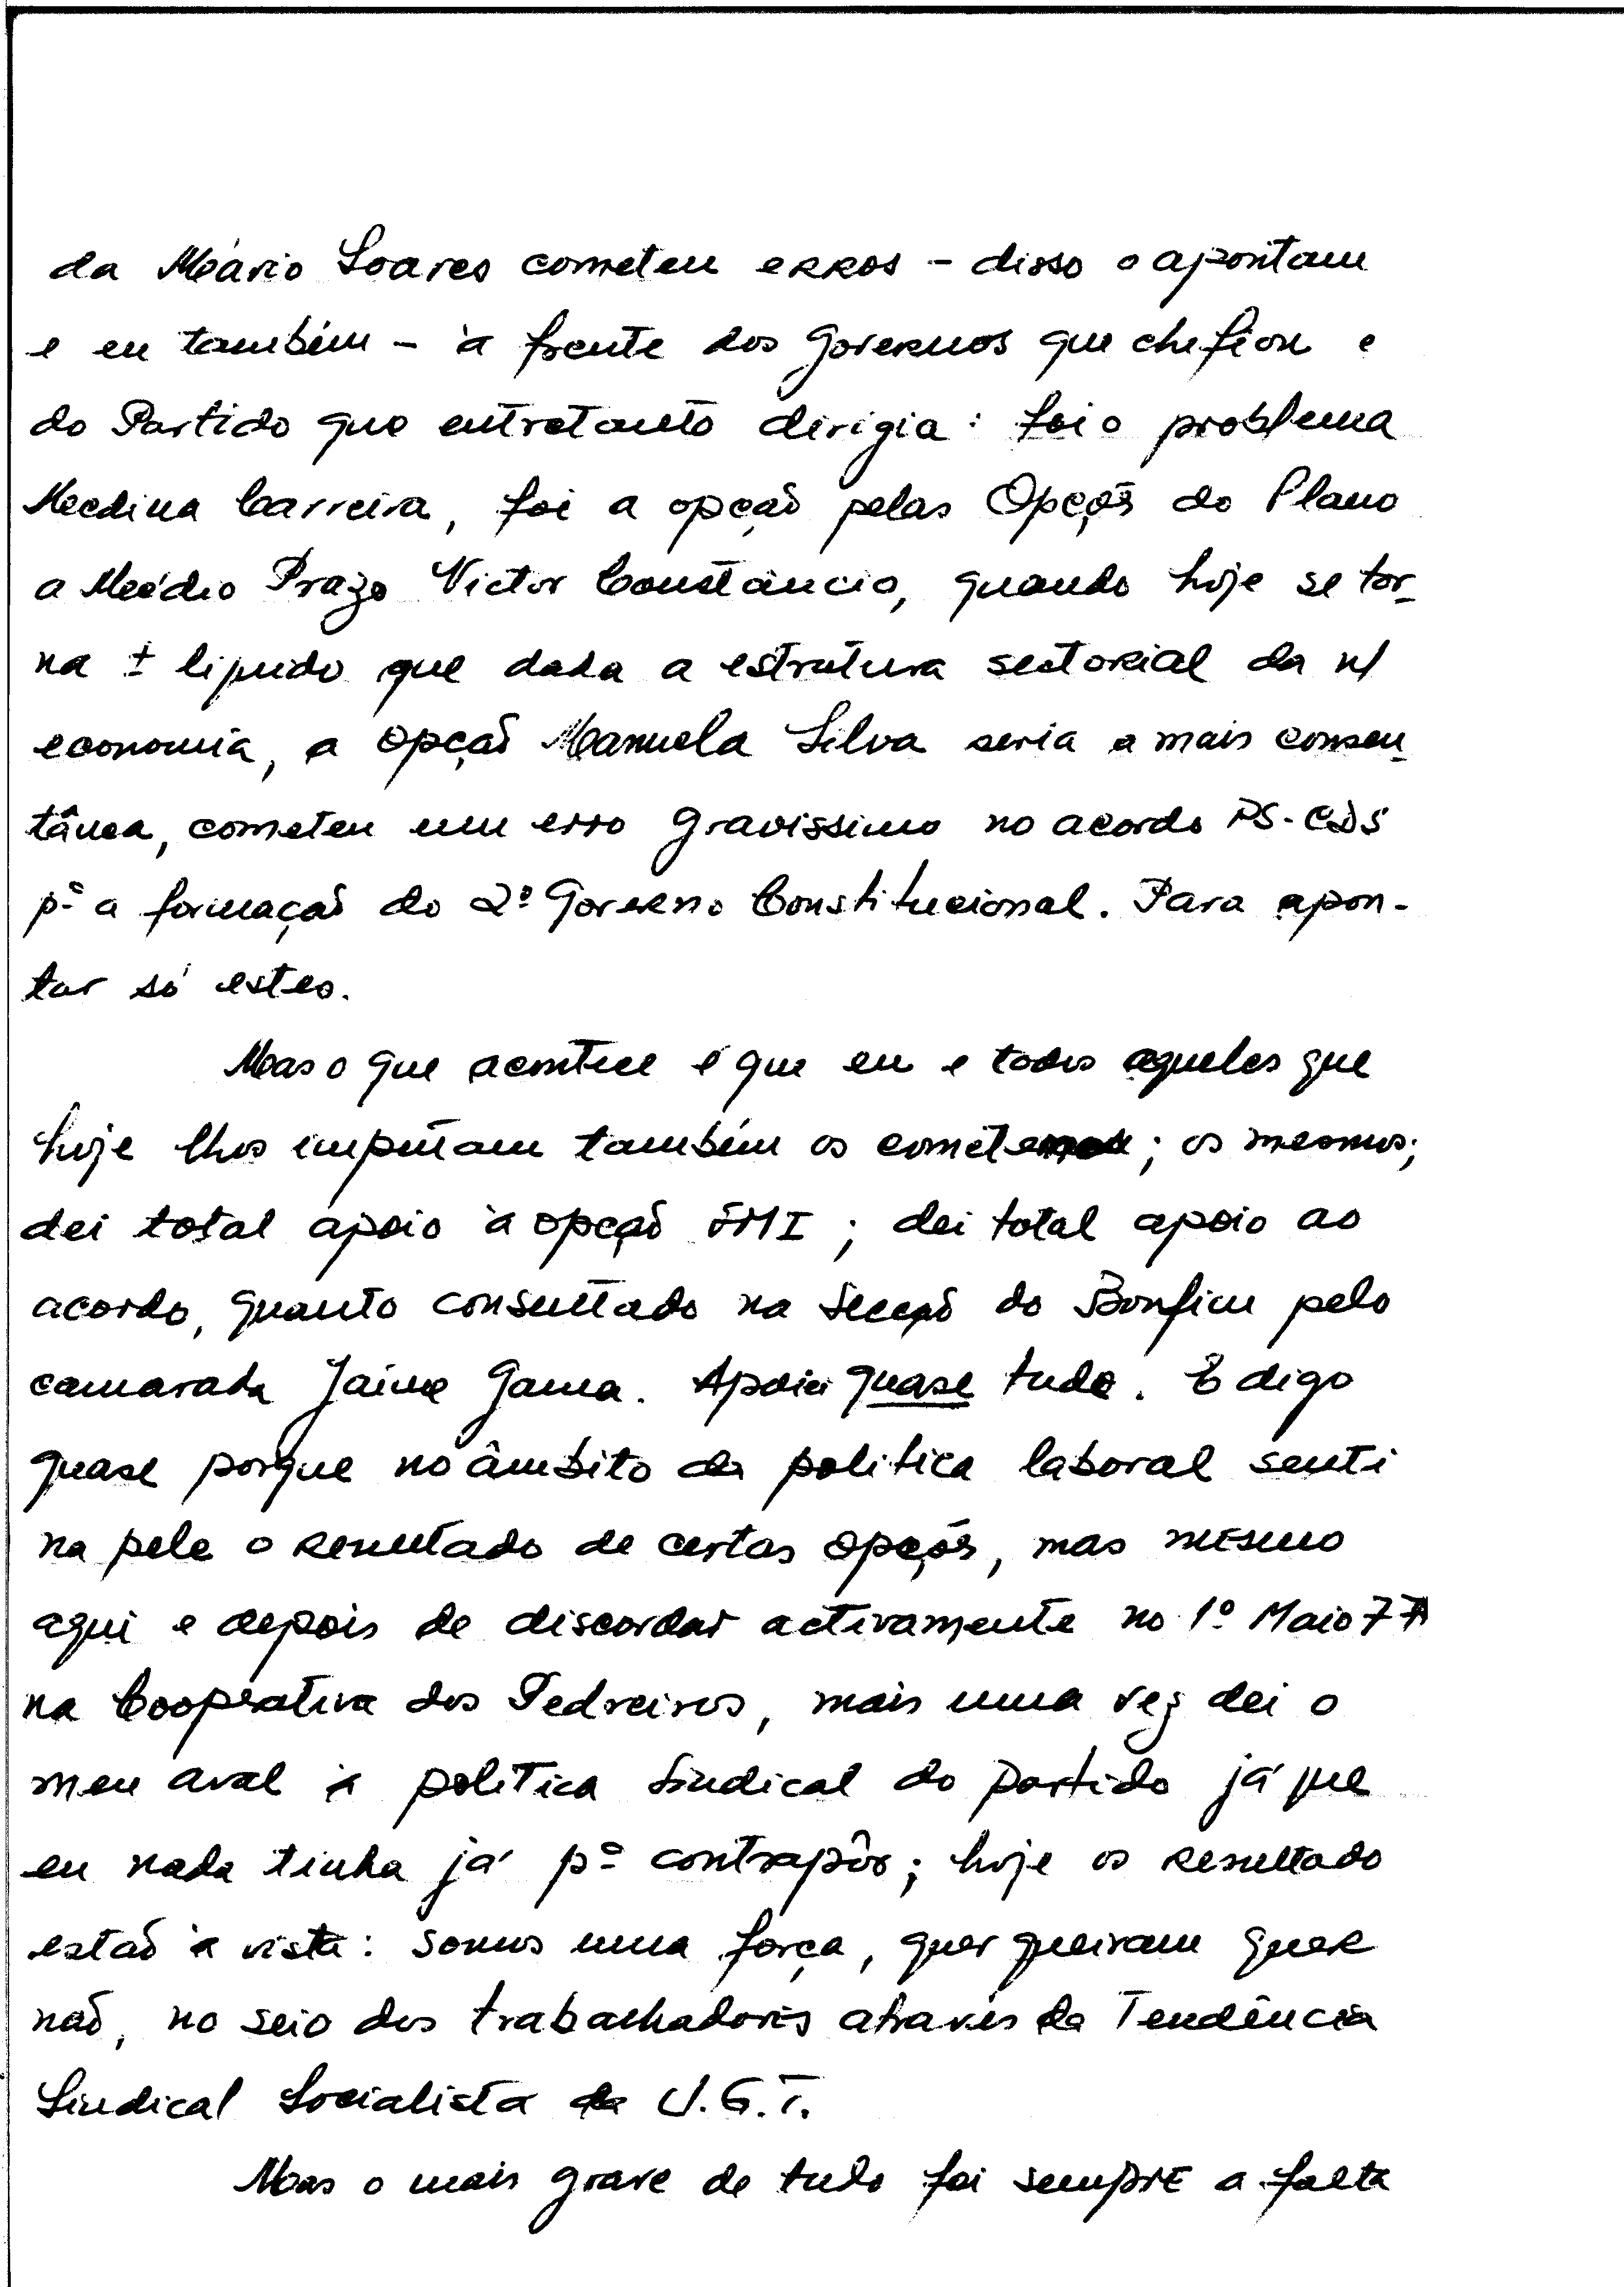 da Mário Soares cometeu erros - disso o apontam
e eu também - à frente dos Governos que chefiou e
do Partido que entretanto dirigia: foi o problema
Medina Carreira, foi a opção pelas Opções do Plano
a Médio Prazo Victor Constâncio, quando hoje se tor-
na ± liquido que dada a estrutura sectorial da n/
economia, a opção Manuela Silva seria a mais consen-
tânea, cometeu um erro gravissimo no acordo PS-CDS
pª a formação do 2º Governo Constitucional. Para apon-
tar só estes.
Mas o que acontece é que eu e todos aqueles que
hoje lhos imputam também os ; os mesmos;
dei total apoio à opção FMI; dei total apoio ao
acordo, quanto consultado na Secção do Bonfim pelo
camarada Jaime Gama. Apoiei quase tudo. E digo
quase porque no âmbito da politica laboral senti
na pele o resultado de certas opções, mas mesmo
aqui e depois de discordar activamente no 1º Maio 77
na Cooperativa dos Pedreiros, mais uma vez dei o
meu aval à politica sindical do partido já que
eu nada tinha já pª contrapôr; hoje os resultado
estão à vista: somos uma força, quer queiram quer
não, no seio dos trabalhadores através da Tendência
Sindical Socialista da U.G.T.
Mas o mais grave de tudo foi sempre a falta